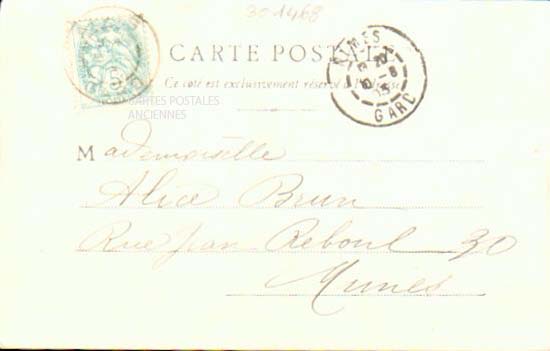 301468
CARTE POSTALE
Ce côté est exclusivement réservé à l'adresse
CARTES POSTALES
ANCIENNES
NIMES
GARD
5
Mademoiselle
Alice Brun
Rue Jean Reboul 30
Nimes